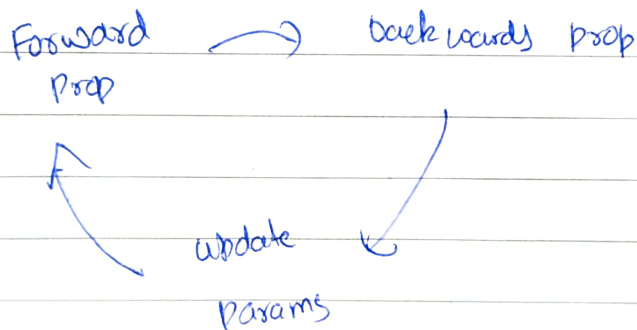 Forward
prop
backwards prop
update
params